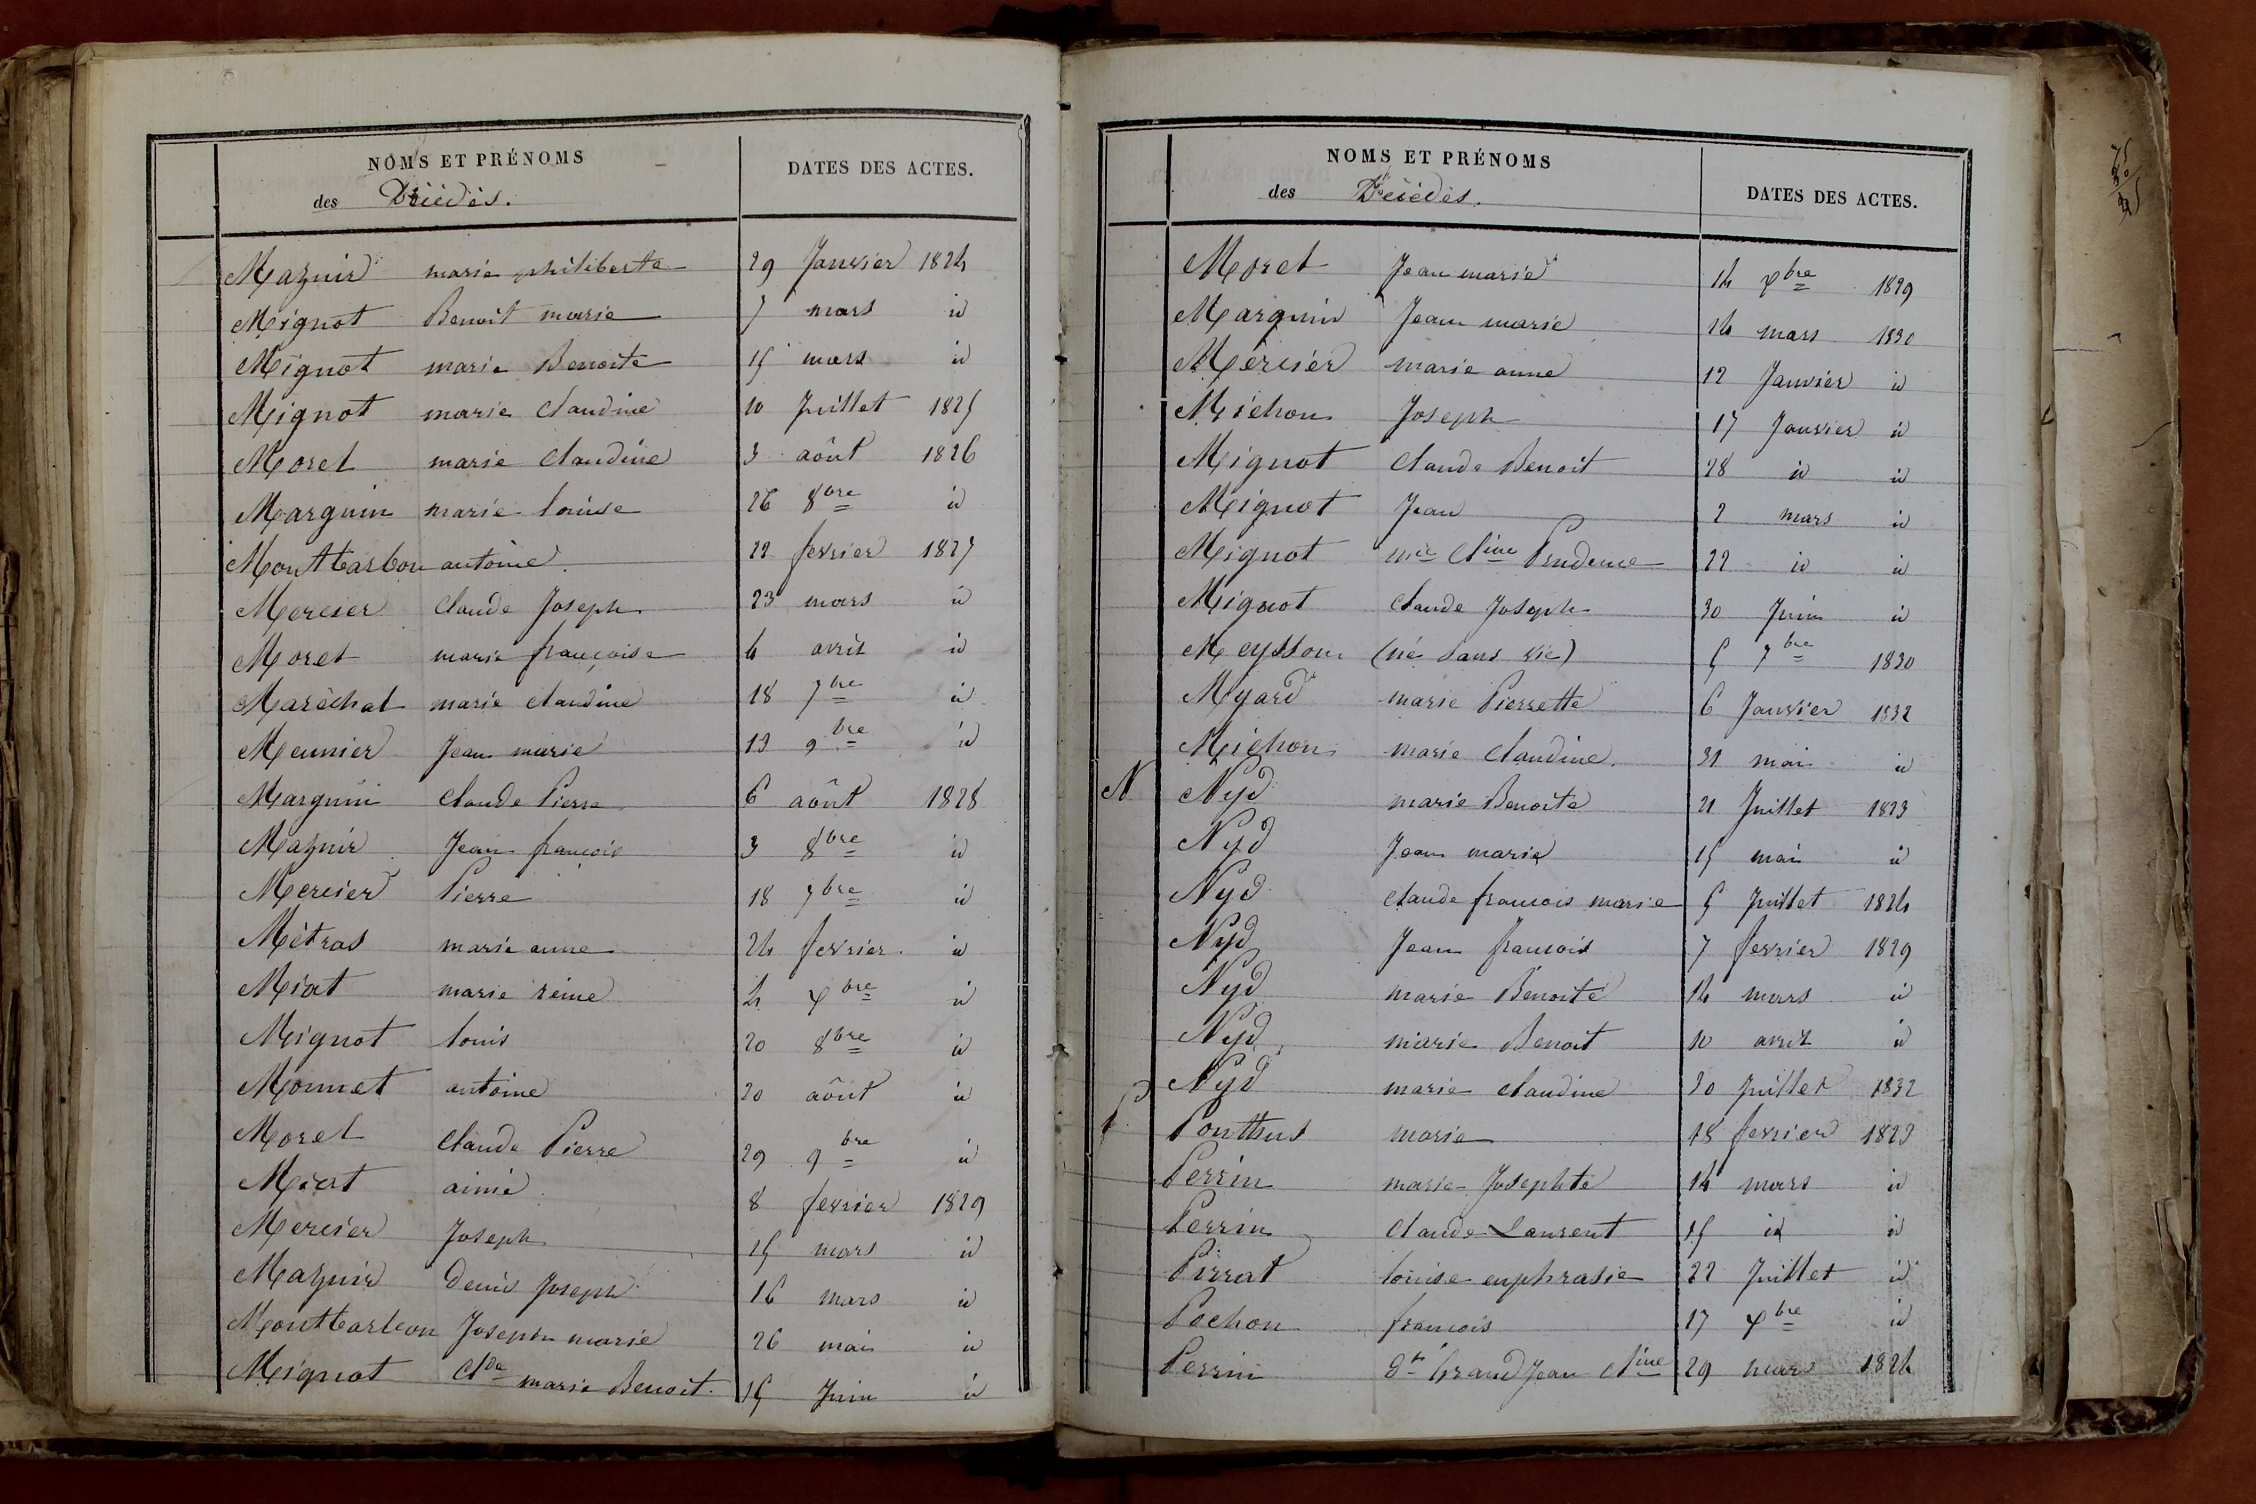 NOMS ET PRÉNOMS
DATES DES ACTES.
des Décédés.
Mazuir marie philiberte 29 Janvier 1824
Mignot Benoit marie 7 mars id
Mignot marie Benoite 15 mars id
Mignot marie Claudine 10 Juillet 1825
Morel marie Claudine 3 août 1826
Marguin marie louise 26 8bre id
Montbarbon antoine 22 fevrier 1827
Mercier Claude Joseph 23 mars id
Morel marie françoise 4 avril id
Maréchal marie Claudine 18 7bre id
Meunier Jean marie 13 9bre id
Marguin Claude Pierre 6 août 1828
Mazuir Jean francois 3 8bre id
Mercier Pierre 18 7bre id
Métras marie anne 24 fevrier id
Miat marie reine 4 Xbre id
Mignot louis 20 8bre id
Monnet antoine 20 août id
Morel Claude Pierre 29 9bre id
Miat aimé 8 fevrier 1829
Mercier Joseph 15 mars id
Mazuir Denis Joseph 16 mars id
Montbarbon Joseph marie 26 mai id
Mignot Cde marie Benoit 15 Juin id
NOMS ET PRÉNOMS
DATES DES ACTES.
des Décédés.
Morel Jean marie 14 Xbre 1829
Marguin Jean marie 14 mars 1830
Mercier marie anne 12 Janvier id
Michon Joseph 17 Janvier id
Mignot Claude Benoit 28 id id
Mignot Jean 2 mars id
Mignot mie Cline Prudence 22 id id
Mignot Claude Joseph 30 Juin id
Meysson (né sans vie) 5 7bre 1830
Myard marie Pierrette 6 Janvier 1832
Michon marie Claudine 31 mai id
N Nyd marie Benoite 21 Juillet 1823
Nyd Jean marie 15 mai id
Nyd Claude francois marie 5 Juillet 1824
Nyd Jean francois 7 fevrier 1829
Nyd marie Benoite 14 mars id
Nyd marie Benoit 10 avril id
Nyd marie Claudine 30 Juillet 1832
P Ponthus marie 18 fevrier 1823
Perrin marie Josephte 14 mars id
Perrin Claude Laurent 15 id id
Pirrat louise euphrasie 22 Juillet id
Pochon francois 17 Xbre id
Perrin dt Grand Jean Cline 29 mars 1824